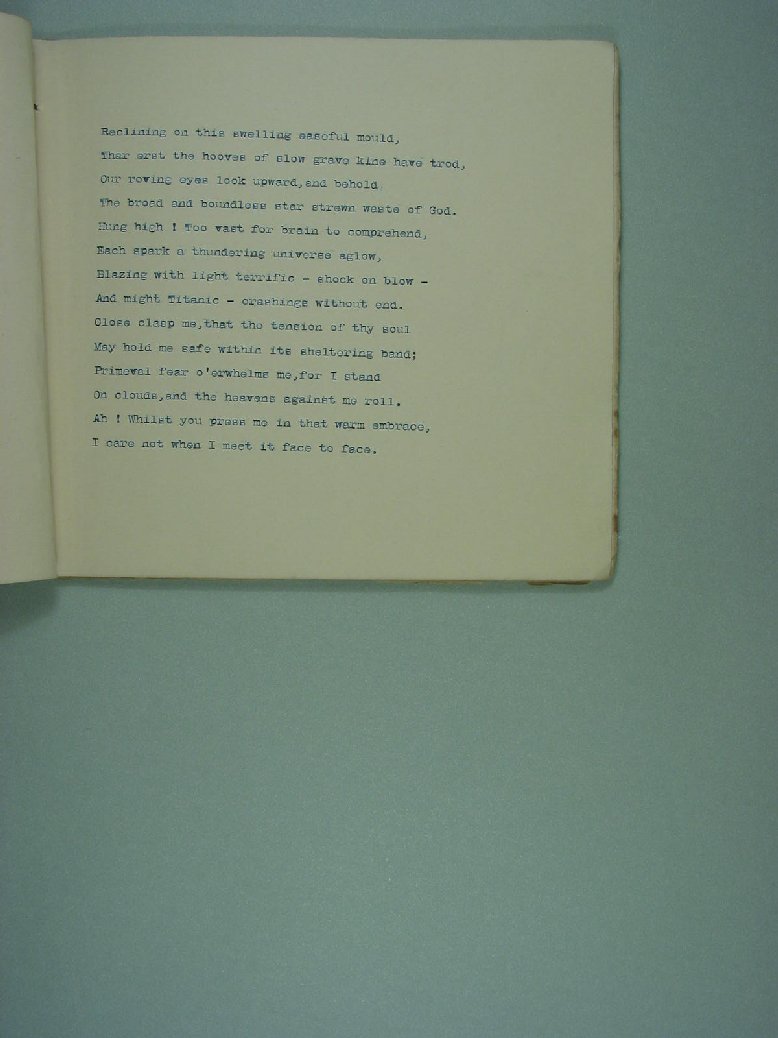 Reclining on this swelling easeful mould,
Thar erst the hooves of slow grave kine have trod,
Our roving eyes look upward,and behold
The broad and boundless star strewn waste of God.
Hung high ! Too vast for brain to comprehend,
Each spark a thundering universe aglow,
Blazing with light terrific - shock on blow -
And might Titanic - crashings without end.
Close clasp me,that the tension of thy soul
May hold me safe within its sheltering band;
Primeval fear o'erwhelms me,for I stand
On clouds,and the heavens against me roll.
Ah ! Whilst you press me in that warm embrace,
I care not when I meet it face to face.